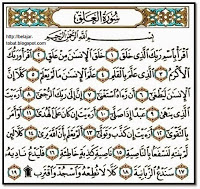 سُورَةُ العَلَقِ
http://belajar-
tobat.blogspot.com
بِسْمِ اللَّهِ الرَّحْمَٰنِ الرَّحِيمِ
اقْرَأْ بِاسْمِ رَبِّكَ الَّذِي خَلَقَ ١ خَلَقَ الْإِنسَانَ مِنْ عَلَقٍ ٢ اقْرَأْ وَرَبُّكَ
الْأَكْرَمُ ٣ الَّذِي عَلَّمَ بِالْقَلَمِ ٤ عَلَّمَ الْإِنسَانَ مَا لَمْ يَعْلَمْ ٥ كَلَّا إِنَّ
الْإِنسَانَ لَيَطْغَىٰ ٦ أَن رَّآهُ اسْتَغْنَىٰ ٧ إِنَّ إِلَىٰ رَبِّكَ الرُّجْعَىٰ ٨ أَرَأَيْتَ
الَّذِي يَنْهَىٰ ٩ عَبْدًا إِذَا صَلَّىٰ ١٠ أَرَأَيْتَ إِن كَانَ عَلَى الْهُدَىٰ ١١ أَوْ أَمَرَ
بِالتَّقْوَىٰ ١٢ أَرَأَيْتَ إِن كَذَّبَ وَتَوَلَّىٰ ١٣ أَلَمْ يَعْلَم بِأَنَّ اللَّهَ يَرَىٰ ١٤ كَلَّا لَئِن
لَّمْ يَنتَهِ لَنَسْفَعًا بِالنَّاصِيَةِ ١٥ نَاصِيَةٍ كَاذِبَةٍ خَاطِئَةٍ ١٦ فَلْيَدْعُ نَادِيَهُ
١٧ سَنَدْعُ الزَّبَانِيَةَ ١٨ كَلَّا لَا تُطِعْهُ وَاسْجُدْ وَاقْتَرِب ١٩